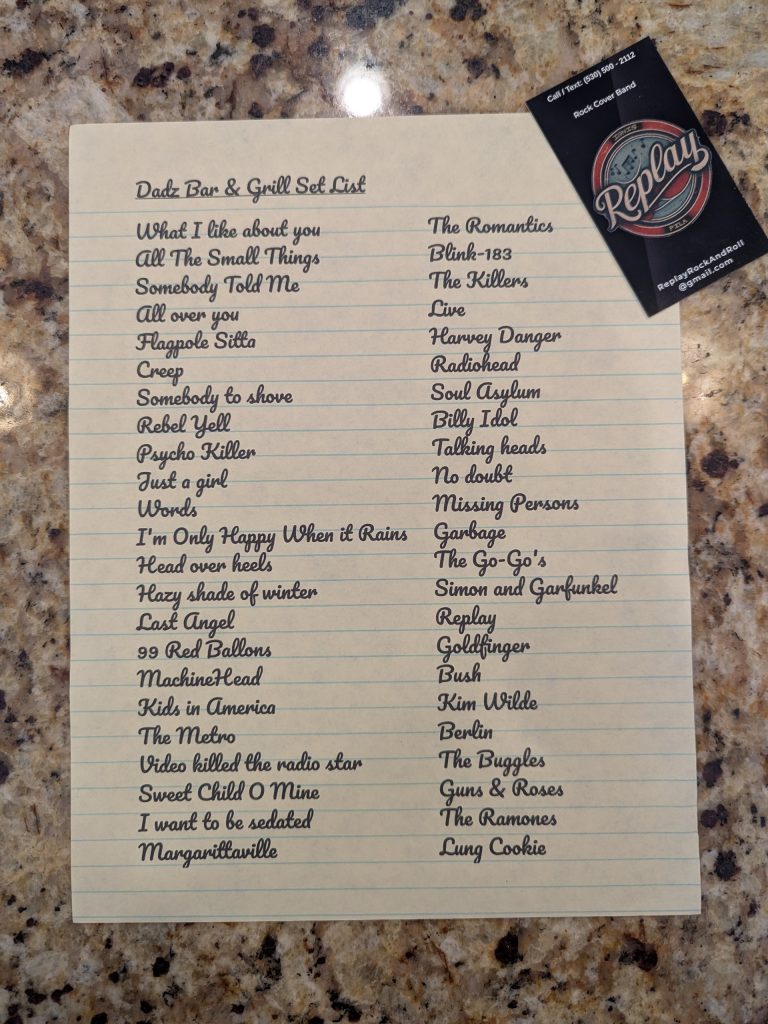 Call / Text: (530) 500 - 2112
Rock Cover Band
Replay
ReplayRockAndRoll
@gmail.com
Dadz Bar & Grill Set List
What I like about you The Romantics
All The Small Things Blink-183
Somebody Told Me The Killers
All over you Live
Flagpole Sitta Harvey Danger
Creep Radiohead
Somebody to shove Soul Asylum
Rebel Yell Billy Idol
Psycho Killer Talking heads
Just a girl No doubt
Words Missing Persons
I'm Only Happy When it Rains Garbage
Head over heels The Go-Go's
Hazy shade of winter Simon and Garfunkel
Last Angel Replay
99 Red Ballons Goldfinger
MachineHead Bush
Kids in America Kim Wilde
The Metro Berlin
Video killed the radio star The Buggles
Sweet Child O Mine Guns & Roses
I want to be sedated The Ramones
Margarittaville Lung Cookie